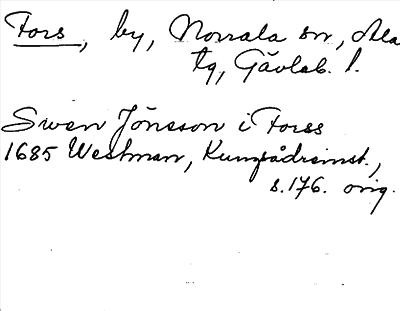 Fors, by, Norrala sn, Ala
tg, Gävleb. l.
Swen Jönsson i Forss
1685 Westman, Kungsådreinst.,
s. 176. orig.